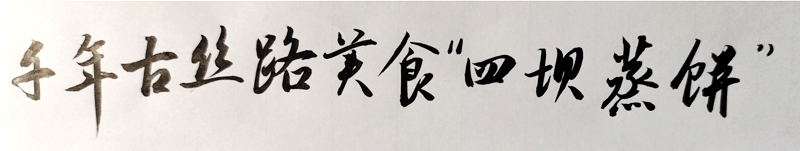 千年古丝路美食“四坝蒸饼”